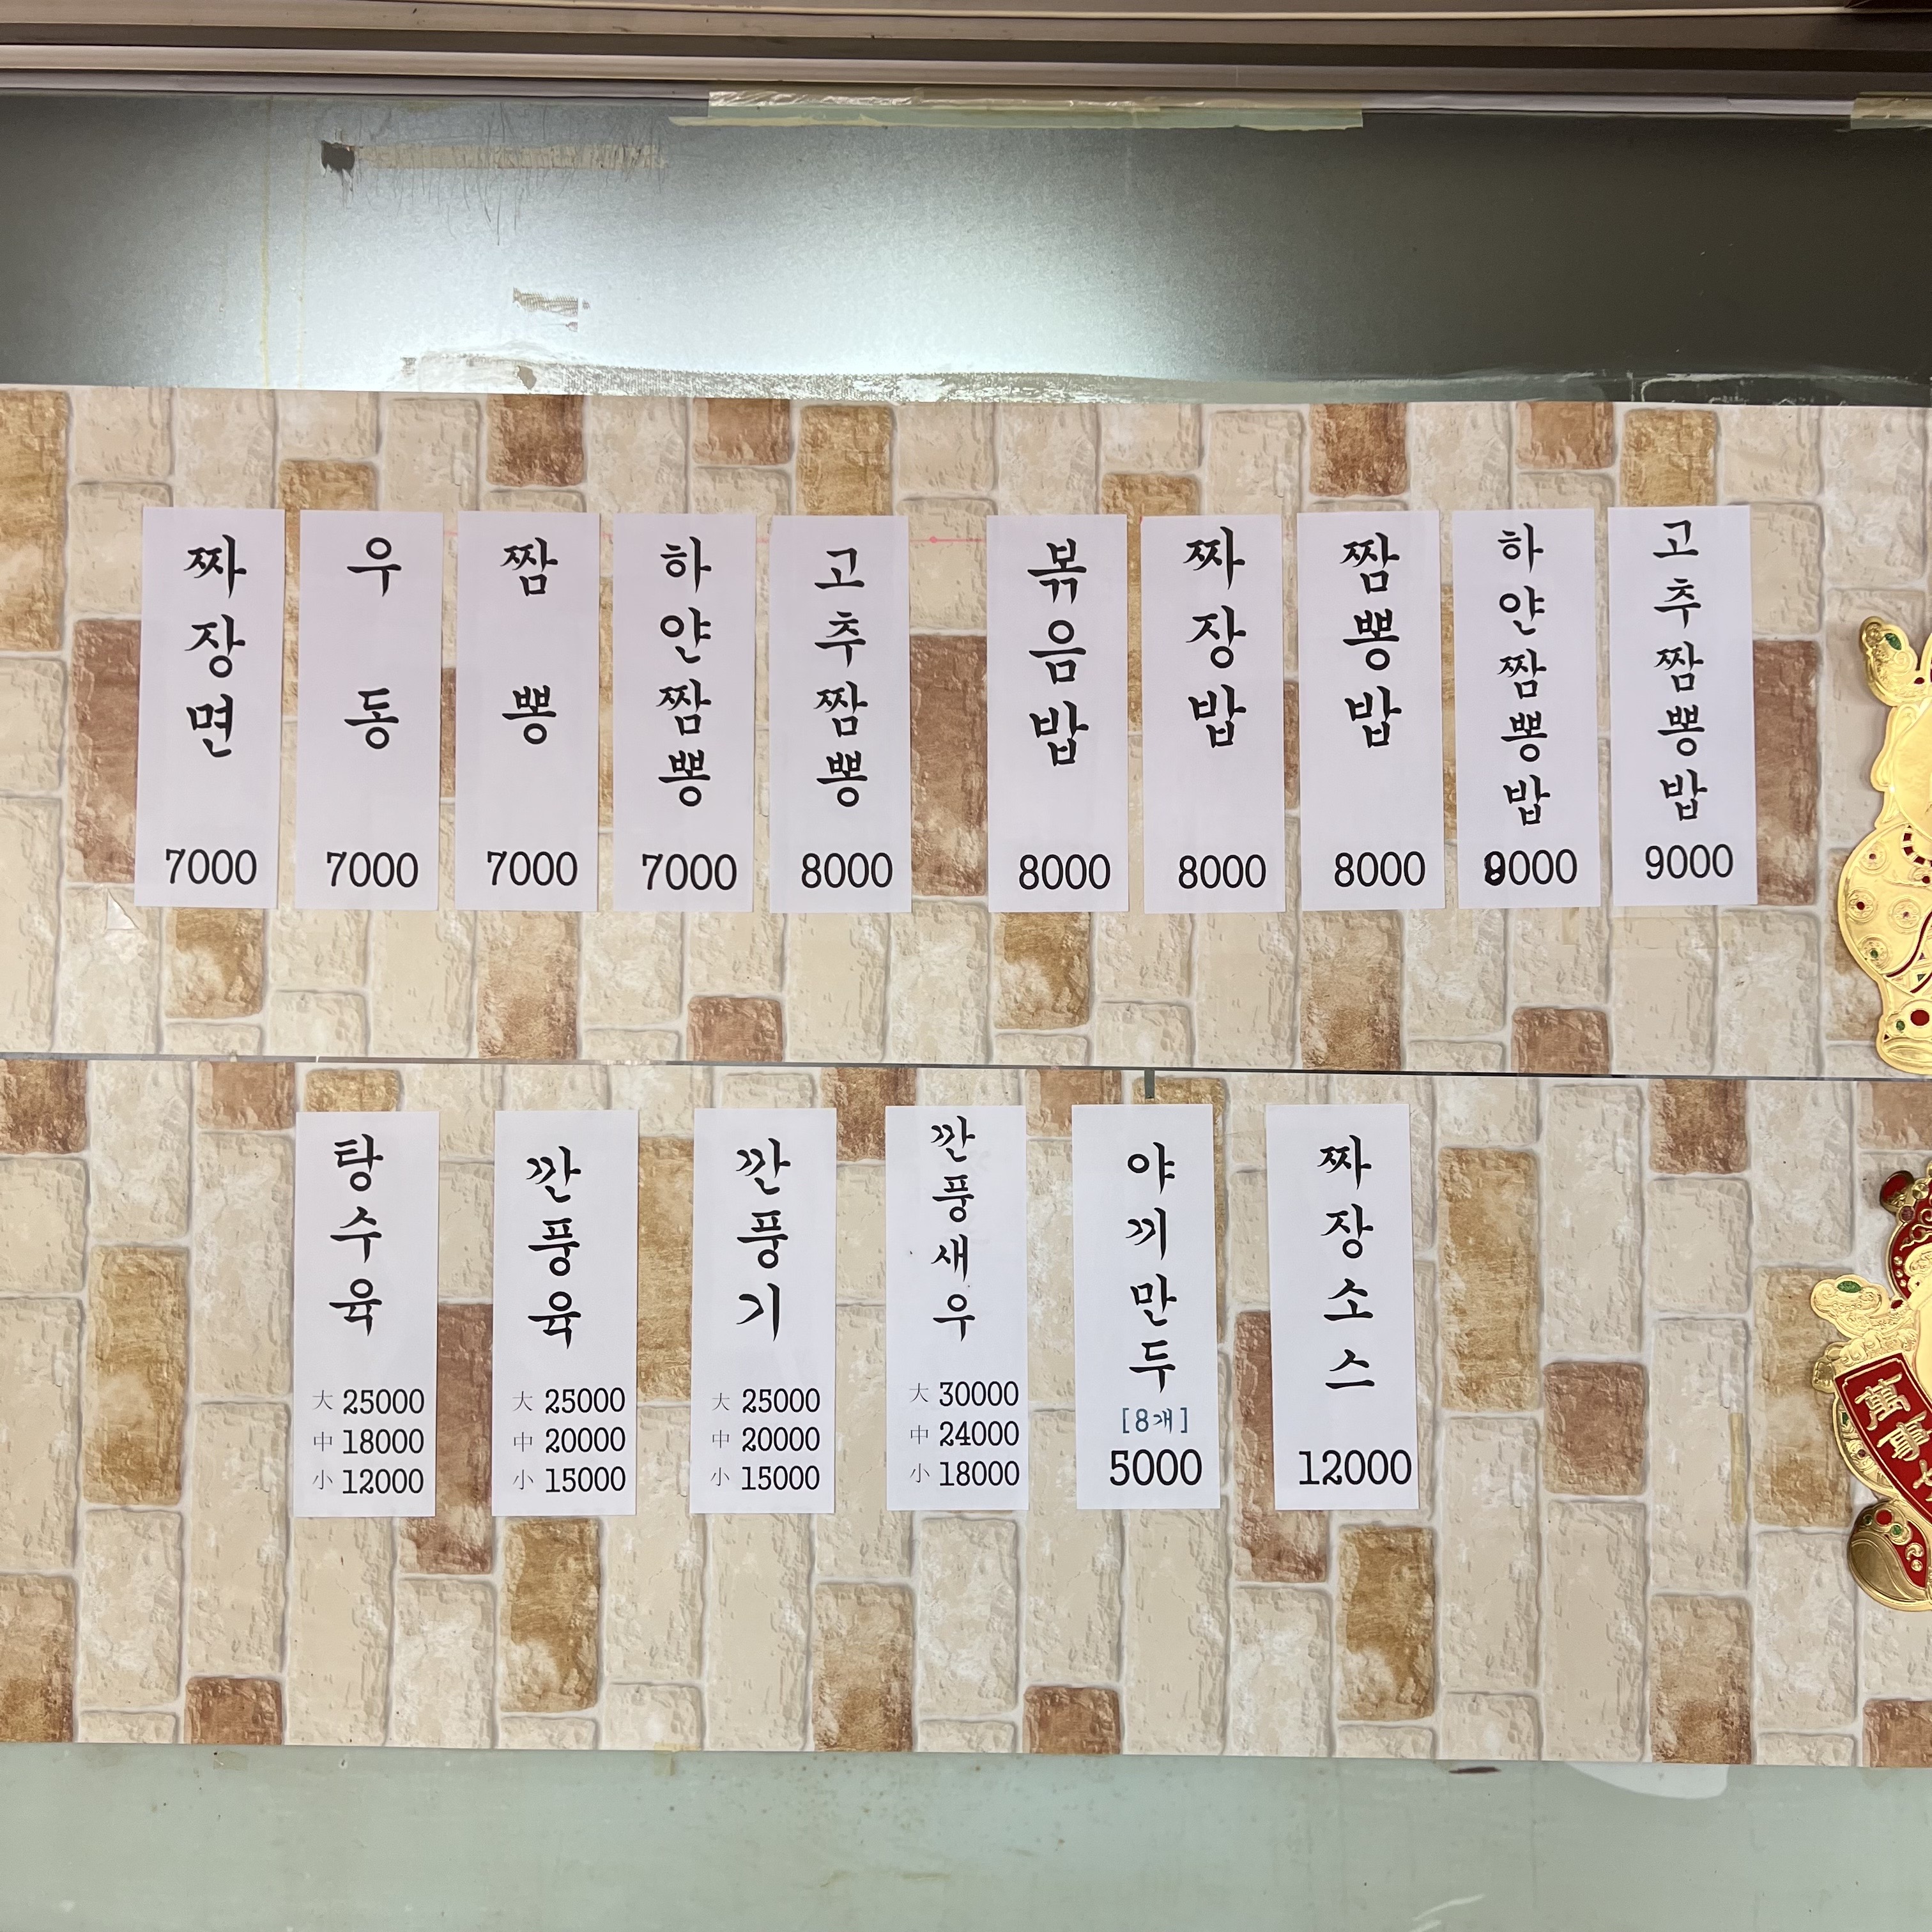 짜장면 7000
우동 7000
짬뽕 7000
하얀짬뽕 7000
고추짬뽕 8000
볶음밥 8000
짜장밥 8000
짬뽕밥 8000
하얀짬뽕밥 9000
고추짬뽕밥 9000
탕수육
大 25000
中 18000
小 12000
깐풍육
大 25000
中 20000
小 15000
깐풍기
大 25000
中 20000
小 15000
깐풍새우
大 30000
中 24000
小 18000
야끼만두
[8개]
5000
짜장소스
12000
萬事